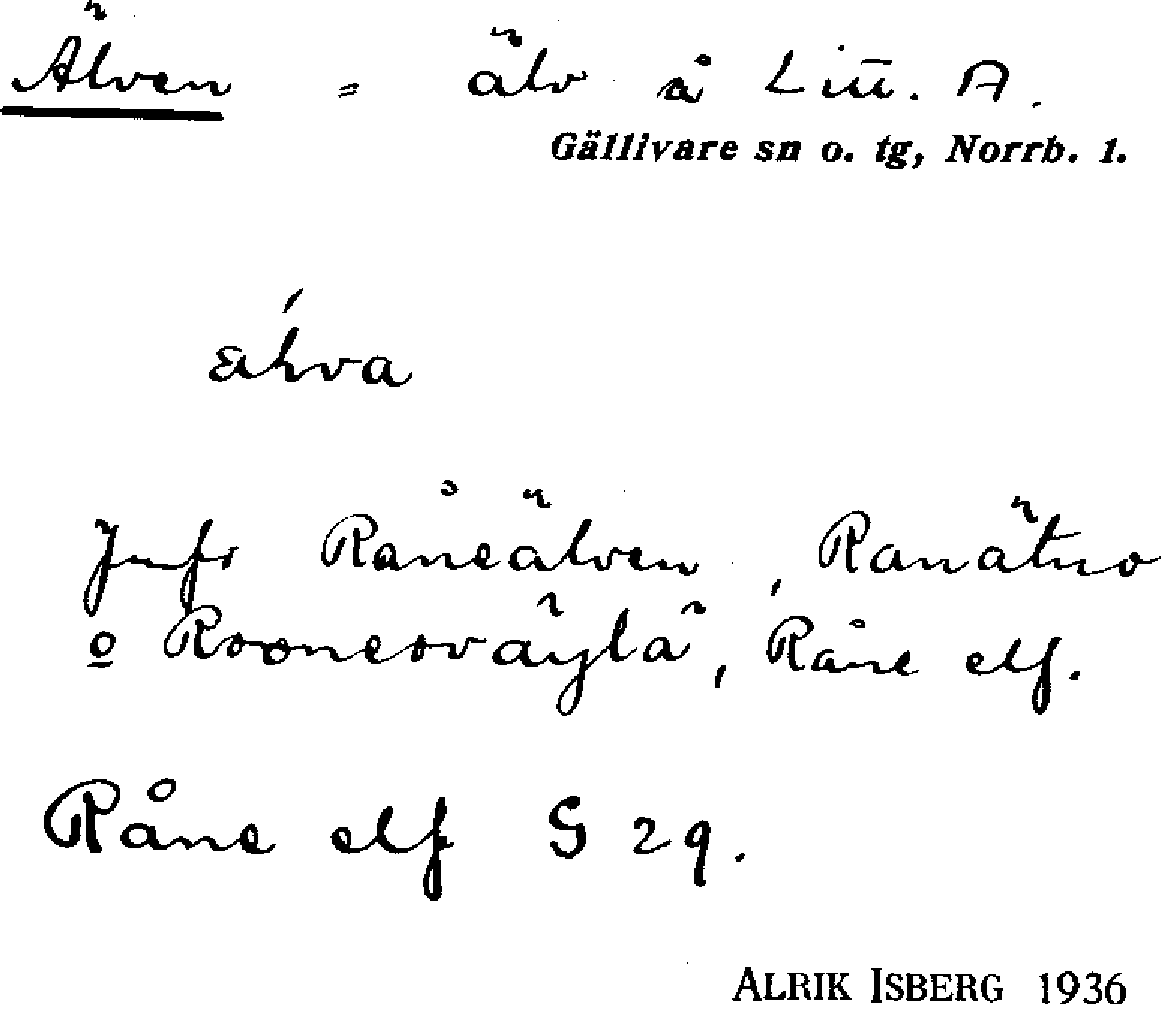 Älven = älv å Litt. A.
Gällivare sn o. tg, Norrb. l.
Jmfr Råneälven, Ranätno
o Rooneoväylä, Råne elf.
Råne elf S 29.
ALRIK ISBERG 1936